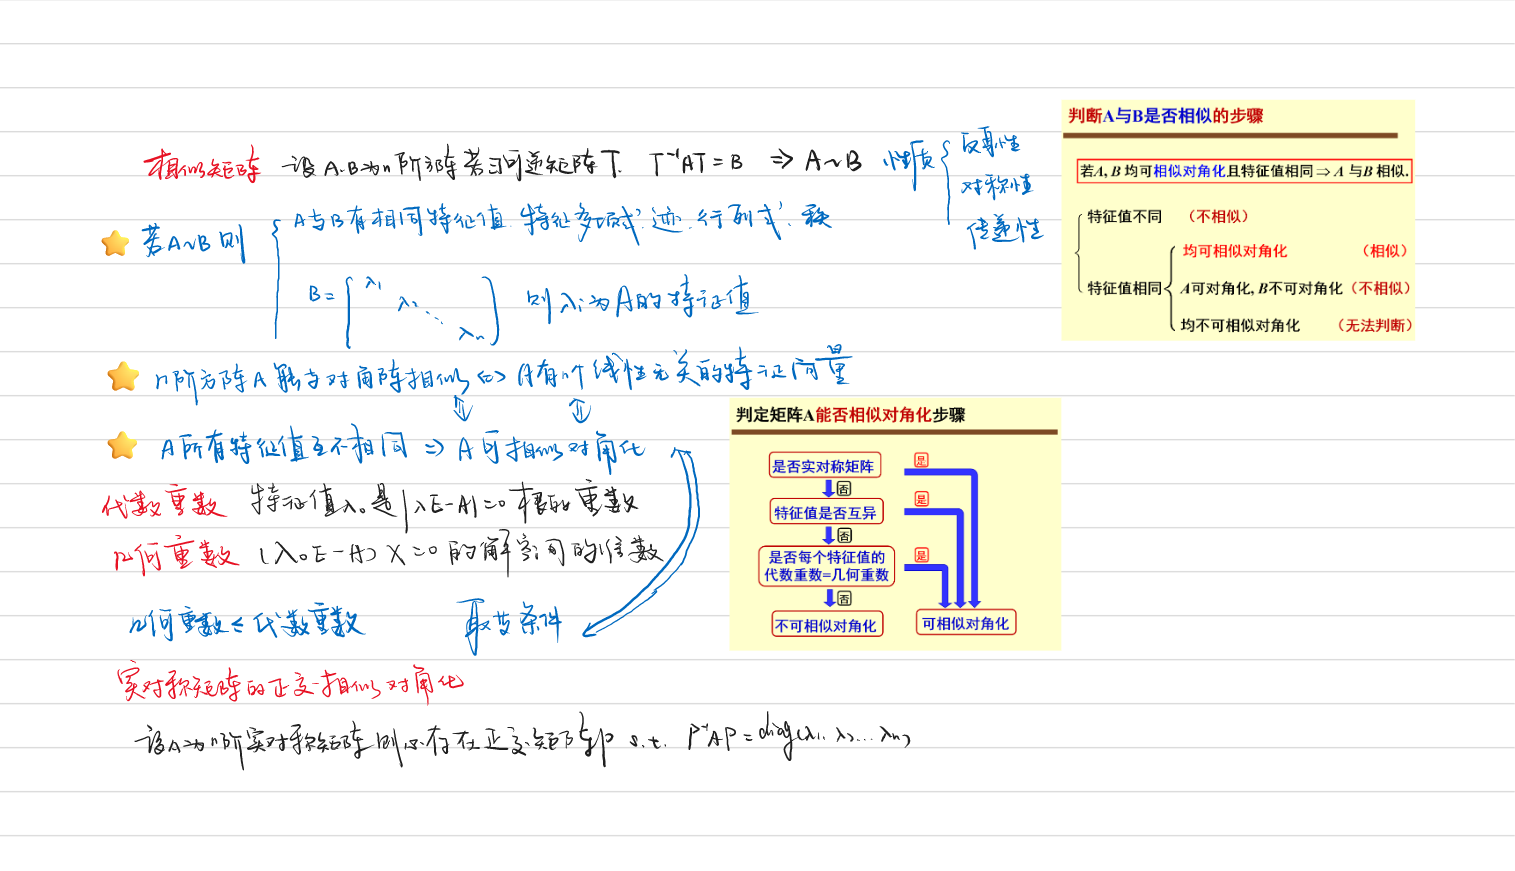 相似矩阵 设A.B为n阶方阵 若∃可逆矩阵T. T⁻¹AT=B ⇒ A~B 性质 反身性
对称性
传递性
若A~B 则 A与B有相同特征值.特征多项式.迹.行列式.秩
B= λ₁ λ₂ ⋱ λₙ 则λᵢ为A的特征值
n阶方阵A能与对角阵相似⇔A有n个线性无关的特征向量
A所有特征值互不相同⇒A可相似对角化
代数重数 特征值λ₀是|λE-A|=0根的重数
几何重数 (λ₀E-A)X=0的解空间的维数
几何重数≤代数重数 取等条件
实对称矩阵的正交相似对角化
设A为n阶实对称矩阵则必存在正交矩阵P s.t. P⁻¹AP=diag(λ₁.λ₂...λₙ)
判断A与B是否相似的步骤
若A, B 均可相似对角化且特征值相同⇒A 与B 相似.
特征值不同 (不相似)
特征值相同
均可相似对角化 (相似)
A可对角化, B不可对角化 (不相似)
均不可相似对角化 (无法判断)
判定矩阵A能否相似对角化步骤
是否实对称矩阵 是
否
特征值是否互异 是
否
是否每个特征值的
代数重数=几何重数 是
否
不可相似对角化 可相似对角化